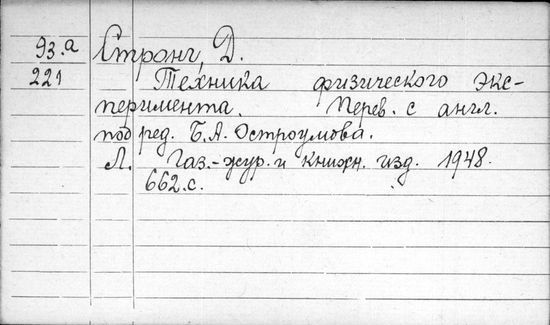 93.а Стронг, Д.
221 Техника физического экс-
перимента. Перев. с англ.
под ред. Б.А. Остроумова.
Л. Газ.-жур. и книжн. изд. 1948.
662.с.